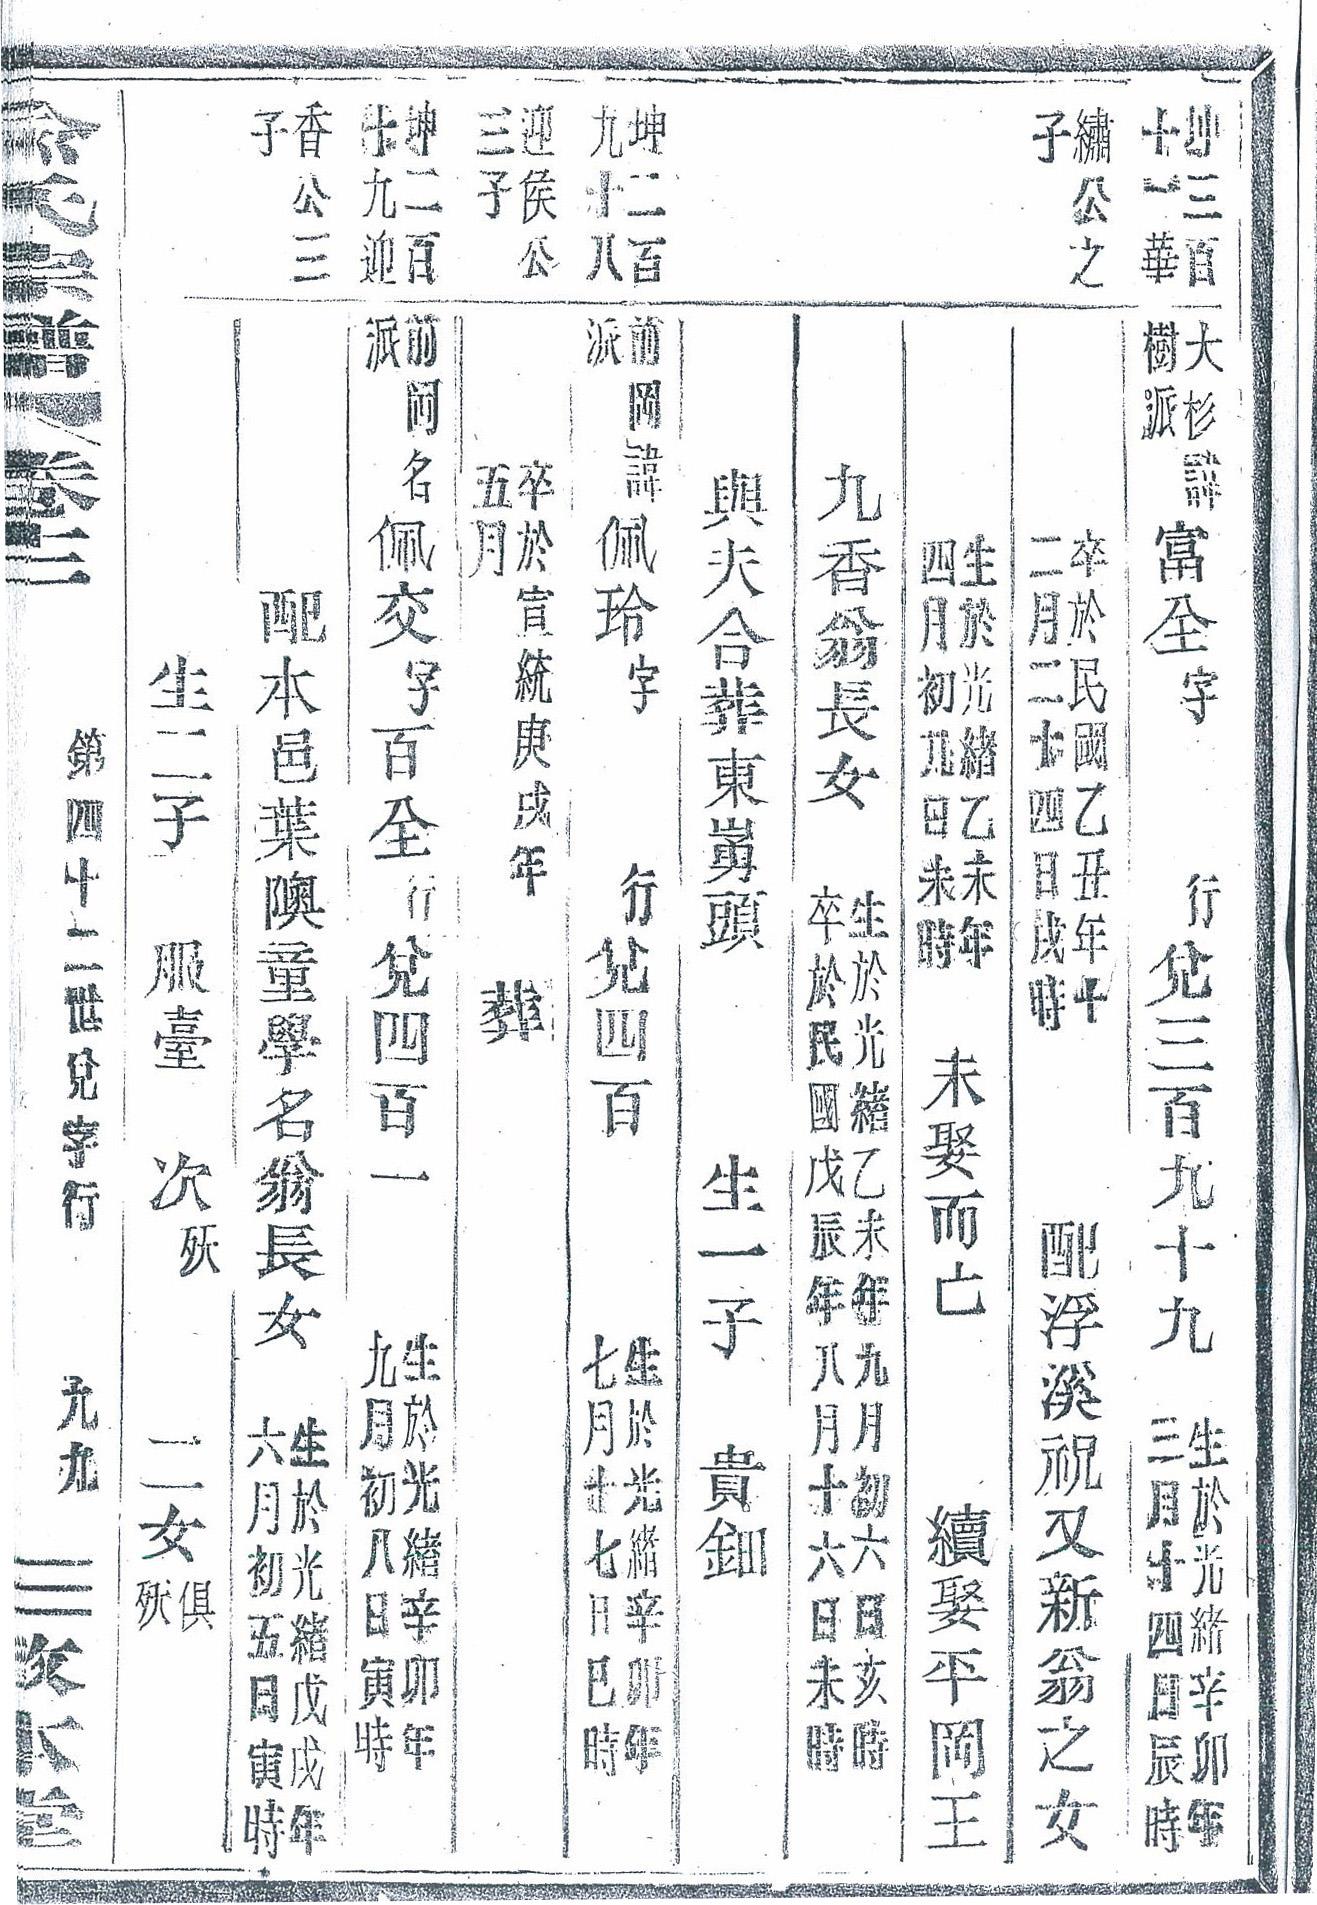 坤三百
十一華
繡公之
子
坤二百
九十八
迎侯公
三子
坤二百
九十九迎
香公三
子
大杉諱
樹派
富全字 行兌三百九十九
生於光緒辛卯年
三月十四日辰時
卒於民國乙丑年十
二月二十四日戌時
配浮溪祝又新翁之女
生於光緒乙未年
四月初九日未時
未娶而亡 續娶平岡王
九香翁長女
生於光緒乙未年九月初六日亥時
卒於民國戊辰年八月十六日未時
與夫合葬東嵩頭 生一子 貴鈿
前岡諱
派
佩玲字 行兌四百
生於光緒辛卯年
七月十七日巳時
卒於宣統庚戌年
五月
葬
前岡名
派
佩交字百全行兌四百一
生於光緒辛卯年
九月初八日寅時
配本邑葉隩童學名翁長女
生於光緒戊戌年
六月初五日寅時
生二子 服臺 次殀 二女俱
殀
余氏宗譜 卷三
第四十二世兌字行
九九
敦本堂